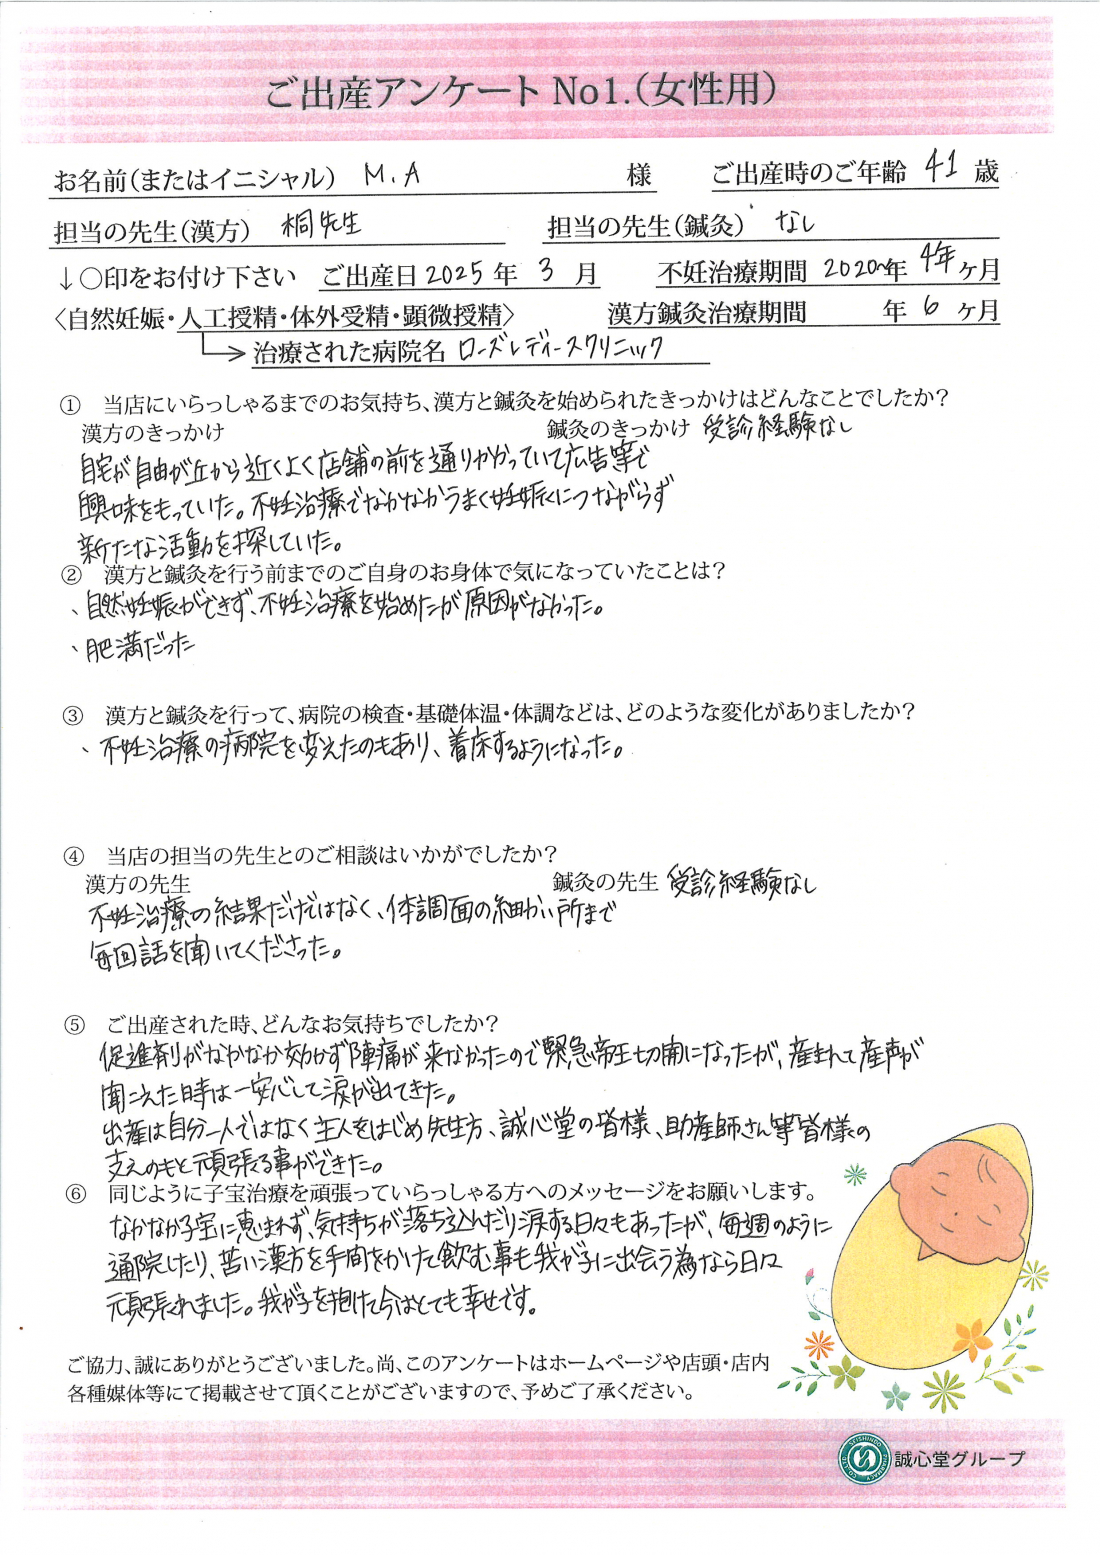 ご出産アンケート No1.(女性用)
お名前(またはイニシャル) M.A 様 ご出産時のご年齢 41 歳
担当の先生(漢方) 桐先生 担当の先生(鍼灸) なし
↓○印をお付け下さい ご出産日 2025 年 3 月 不妊治療期間 2020~年 4年 ヶ月
〈自然妊娠・人工授精・体外受精・顕微授精〉 漢方鍼灸治療期間 年 6 ヶ月
治療された病院名 ローズレディースクリニック
① 当店にいらっしゃるまでのお気持ち、漢方と鍼灸を始められたきっかけはどんなことでしたか?
漢方のきっかけ 鍼灸のきっかけ 受診経験なし
自宅が自由が丘から近くよく店舗の前を通りかかっていて広告等で
興味をもっていた。不妊治療でなかなかうまく妊娠につながらず
新たな活動を探していた。
② 漢方と鍼灸を行う前までのご自身のお身体で気になっていたことは?
、自然妊娠ができず、不妊治療を始めたが原因がなかった。
、肥満だった
③ 漢方と鍼灸を行って、病院の検査・基礎体温・体調などは、どのような変化がありましたか?
、不妊治療の病院を変えたのもあり、着床するようになった。
④ 当店の担当の先生とのご相談はいかがでしたか?
漢方の先生 鍼灸の先生 受診経験なし
不妊治療の結果だけではなく、体調面の細かい所まで
毎回話を聞いてくださった。
⑤ ご出産された時、どんなお気持ちでしたか?
促進剤がなかなか効かず陣痛が来なかったので緊急帝王切開になったが、産まれて産声が
聞こえた時は一安心して涙が出てきた。
出産は自分一人ではなく主人をはじめ先生方、誠心堂の皆様、助産師さん等皆様の
支えのもと頑張る事ができた。
⑥ 同じように子宝治療を頑張っていらっしゃる方へのメッセージをお願いします。
なかなか子宝に恵まれず、気持ちが落ち込んだり涙する日々もあったが、毎週のように
通院したり、苦い漢方を手間をかけて飲む事も我が子に出会う為なら日々
頑張れました。我が子を抱けて今はとても幸せです。
ご協力、誠にありがとうございました。尚、このアンケートはホームページや店頭・店内
各種媒体等にて掲載させて頂くことがございますので、予めご了承ください。
SEISHINDO PHARMACY CO.,LTD. 誠心堂グループ